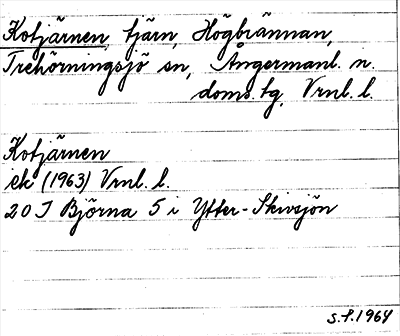 Kotjärnen, tjärn, Högbrännan,
Trehörningsjö sn, Ångermanl. n.
doms. tg, Vrnl. l.
Kotjärnen
ek (1963) Vrnl. l.
20 J Björna 5 i Ytter-Skivsjön
S.F. 1964